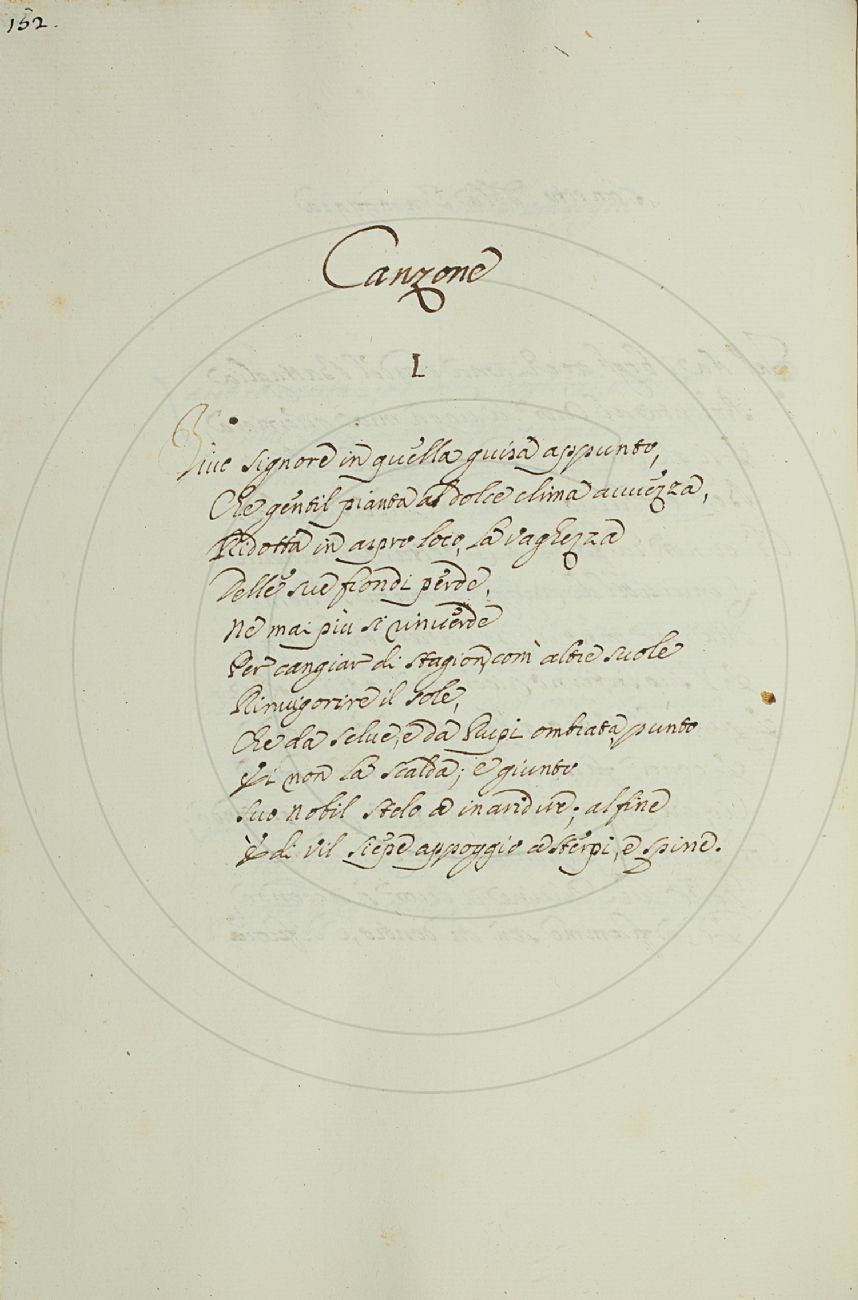 152.
Canzone
I
Vivo Signore in quella guisa appunto,
Che gentil pianta al dolce clima avvezza,
Ridotta in aspro loco, la vaghezza
Delle sue frondi perde,
Ne mai più si rinverde
Per cangiar di stagion, com' altre suole
Rinvigorire il sole,
Che da selve, e da Rupi ombrata, punto
Vi non la scalda; e giunto
Suo nobil stelo a inaridire; al fine
È di vil siepe appoggio a sterpi, e spine.